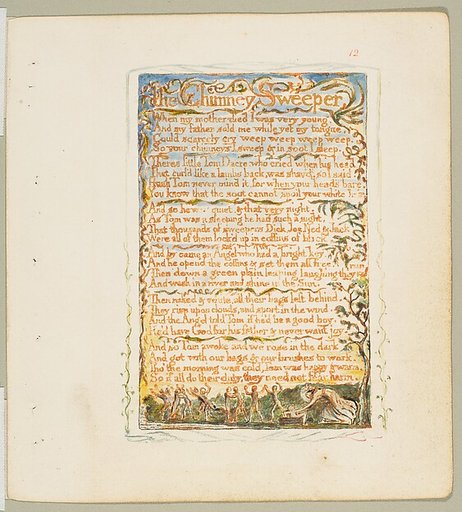 12
The Chimney Sweeper
When my mother died I was very young,
And my father sold me while yet my tongue,
Could scarcely cry weep weep weep weep.
So your chimneys I sweep & in soot I sleep.
Theres little Tom Dacre who cried when his head
That curl'd like a lambs back, was shav'd, so I said
Hush Tom never mind it, for when your head's bare,
You know that the soot cannot spoil your white
And so he quiet, & that very night,
As Tom was a sleeping he had such a sight,
That thousands of sweepers Dick, Joe, Ned & Jack
Were all of them lock'd up in coffins of black
And by came an Angel who had a bright key
And he open'd the coffins & set them all free
Then down a green plain leaping laughing they run
And wash in a river and shine in the Sun.
Then naked & white, all their bags left behind,
They rise upon clouds, and sport in the wind
And the Angel told Tom if he'd be a good boy,
He'd have God for his father & never want joy.
And so Tom awoke and we rose in the dark
And got with our bags & our brushes to work.
Tho' the morning was cold, Tom was happy & warm,
So if all do their duty, they need not fear harm.